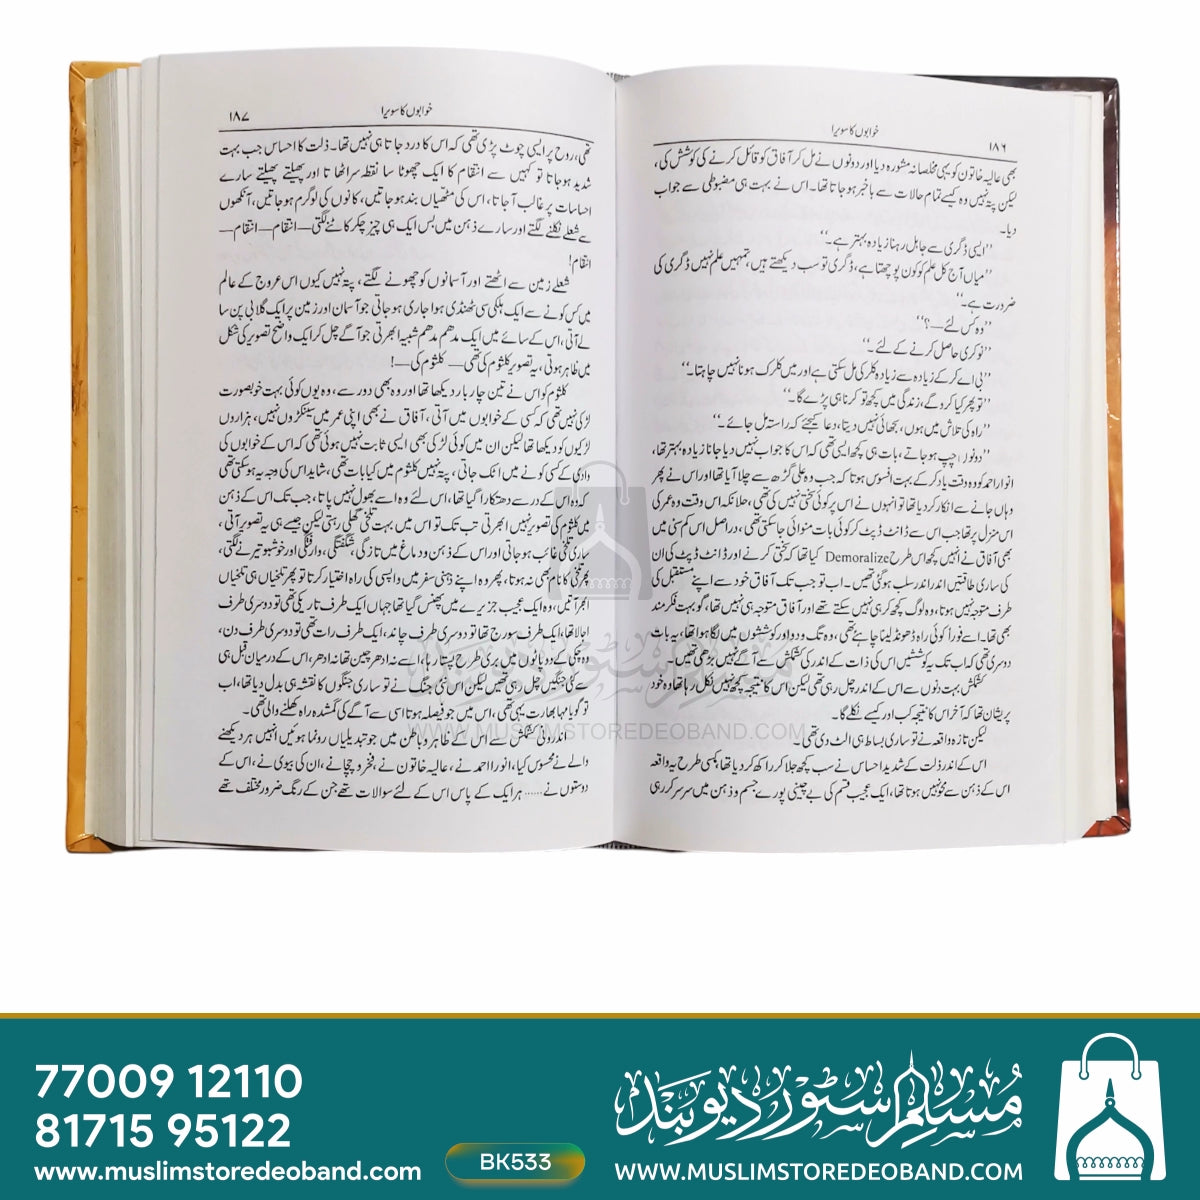 خوابوں کا سویرا
۱۸۶
بھی عالیہ خاتون کو یہی مخلصانہ مشورہ دیا اور دونوں نے مل کر آفاق کو قائل کرنے کی کوشش کی،
لیکن پتہ نہیں وہ کیسے تمام حالات سے باخبر ہو جاتا تھا۔ اس نے بہت ہی مضبوطی سے جواب
دیا۔
”ایسی ڈگری سے جاہل رہنا زیادہ بہتر ہے۔“
”میاں آج کل علم کو کون پوچھتا ہے، ڈگری تو سب دیکھتے ہیں، تمہیں علم نہیں ڈگری کی
ضرورت ہے۔“
”وہ کس لئے—؟“
”نوکری حاصل کرنے کے لئے۔“
”بی اے کر کے زیادہ سے زیادہ کلرکی مل سکتی ہے اور میں کلرک ہونا نہیں چاہتا۔“
”تو پھر کیا کرو گے، زندگی میں کچھ تو کرنا ہی پڑے گا۔“
”راہ کی تلاش میں ہوں، سجھائی نہیں دیتا، دعا کیجئے کہ راستہ مل جائے۔“
”دونوں چپ ہو جاتے، بات ہی کچھ ایسی تھی کہ اس کا جواب نہیں دیا جانا زیادہ بہتر تھا،
انوار احمد کو وہ وقت یاد کر کے بہت افسوس ہوتا کہ جب وہ علی گڑھ سے چلا آیا تھا اور اس نے پھر
وہاں جانے سے انکار کر دیا تھا تو انہوں نے اس پر کوئی سختی نہیں کی تھی، حلانکہ اس وقت وہ عمر کی
اس منزل پر تھا جب اس سے ڈانٹ ڈپٹ کر کوئی بات منوائی جا سکتی تھی، در اصل اس کم سنی میں
بھی آفاق نے انہیں کچھ اس طرح Demoralize کیا تھا کہ سختی کرنے اور ڈانٹ ڈپٹ کی ان
کی ساری طاقتیں اندر اندر سلب ہو گئی تھیں۔ اب تو جب تک آفاق خود سے اپنے مستقبل کی
طرف متوجہ نہیں ہوتا، وہ لوگ کچھ کر ہی نہیں سکتے تھے اور آفاق متوجہ ہی نہیں تھا، گو بہت فکر مند
بھی تھا۔ اسے فوراً کوئی راہ ڈھونڈ لینا چاہئے تھی، وہ تگ و دو اور کوششوں میں لگا ہوا تھا، یہ بات
دوسری تھی کہ اب تک یہ کوششیں اس کی ذات کے اندر کی کشمکش سے آگے نہیں بڑھی تھیں۔
کشمکش بہت دنوں سے اس کے اندر چل رہی تھی لیکن اس کا نتیجہ کچھ نہیں نکل رہا تھا وہ خود
پریشان تھا کہ آخر اس کا نتیجہ کب اور کیسے نکلے گا۔
لیکن تازہ واقعہ نے تو ساری بساط ہی الٹ دی تھی۔
اس کے اندر ذلت کے شدید احساس نے سب کچھ جلا کر راکھ کر دیا تھا، کسی طرح یہ واقعہ
اس کے ذہن سے محو نہیں ہوتا تھا، ایک عجیب قسم کی بے چینی پورے جسم و ذہن میں سرسر کر رہی
خوابوں کا سویرا
۱۸۷
تھی، روح پر ایسی چوٹ پڑی تھی کہ اس کا درد جاتا ہی نہیں تھا۔ ذلت کا احساس جب بہت
شدید ہو جاتا تو کہیں سے انتقام کا ایک چھوٹا سا نقطہ سر اٹھاتا اور پھیلتے پھیلتے سارے
احساسات پر غالب آ جاتا، اس کی مٹھیاں بند ہو جاتیں، کانوں کی لو گرم ہو جاتیں، آنکھوں
سے شعلے نکلنے لگتے اور سارے ذہن میں بس ایک ہی چیز چکر کاٹنے لگتی— انتقام— انتقام—
انتقام!
شعلے زمین سے اٹھتے اور آسمانوں کو چھونے لگتے، پتہ نہیں کیوں اس عروج کے عالم
میں کس کونے سے ایک ہلکی سی ٹھنڈی ہوا جاری ہو جاتی جو آسمان اور زمین پر ایک گلابی پن سا
لے آتی، اس کے سائے میں ایک مدھم مدھم شبیہ ابھرتی جو آگے چل کر ایک واضح تصویر کی شکل
میں ظاہر ہوتی، یہ تصویر کلثوم کی تھی— کلثوم کی—!
کلثوم کو اس نے تین چار بار دیکھا تھا اور وہ بھی دور سے، وہ یوں کوئی بہت خوبصورت
لڑکی نہیں تھی کہ کسی کے خوابوں میں آتی، آفاق نے بھی اپنی عمر میں سینکڑوں نہیں، ہزاروں
لڑکیوں کو دیکھا تھا لیکن ان میں کوئی لڑکی بھی ایسی ثابت نہیں ہوئی تھی کہ اس کے خوابوں کی
وادی کے کسی کونے میں اٹک جاتی، پتہ نہیں کلثوم میں کیا بات تھی، شاید اس کی وجہ یہ ہو سکتی تھی
کہ وہ اس کے در سے دھتکارا گیا تھا، اس لئے وہ اسے بھول نہیں پاتا، جب تک اس کے ذہن
میں کلثوم کی تصویر نہیں ابھرتی تب تک تو اس میں بہت تلخی گھلی رہتی لیکن جیسے ہی یہ تصویر آتی،
ساری تلخی غائب ہو جاتی اور اس کے ذہن و دماغ میں تازگی، شگفتگی، وارفتگی اور خوشبو تیرنے لگتی،
پھر تلخی کا نام بھی نہ ہوتا، پھر وہ اپنے ذہنی سفر میں واپسی کی راہ اختیار کرتا تو پھر تلخیاں ہی تلخیاں
ابھر آتیں، وہ ایک عجیب جزیرے میں پھنس گیا تھا جہاں ایک طرف تاریکی تھی تو دوسری طرف
اجالا تھا، ایک طرف سورج تھا تو دوسری طرف چاند، ایک طرف رات تھی تو دوسری طرف دن،
وہ چکی کے دو پاٹوں میں بری طرح پستا رہا، اسے نہ ادھر چین تھا نہ ادھر، اس کے درمیان قبل ہی
سے کئی جنگیں چل رہی تھیں لیکن اس نئی جنگ نے تو ساری جنگوں کا نقشہ ہی بدل دیا تھا، اب
تو گویا مہا بھارت یہی تھی، اس میں جو فیصلہ ہوتا اسی سے آگے کی گمشدہ راہ کھلنے والی تھی۔
اندرونی کشمکش سے اس کے ظاہر و باطن میں جو تبدیلیاں رونما ہوئیں انہیں ہر دیکھنے
والے نے محسوس کیا، انور احمد نے، عالیہ خاتون نے، فخرو چچا نے، ان کی بیوی نے، اس کے
دوستوں نے...... ہر ایک کے پاس اس کے لئے سوالات تھے جن کے رنگ ضرور مختلف تھے
مسلم سٹور دیوبند
WWW.MUSLIMSTOREDEOBAND.COM
77009 12110
81715 95122
www.muslimstoredeoband.com
BK533
مسلم سٹور دیوبند
WWW.MUSLIMSTOREDEOBAND.COM